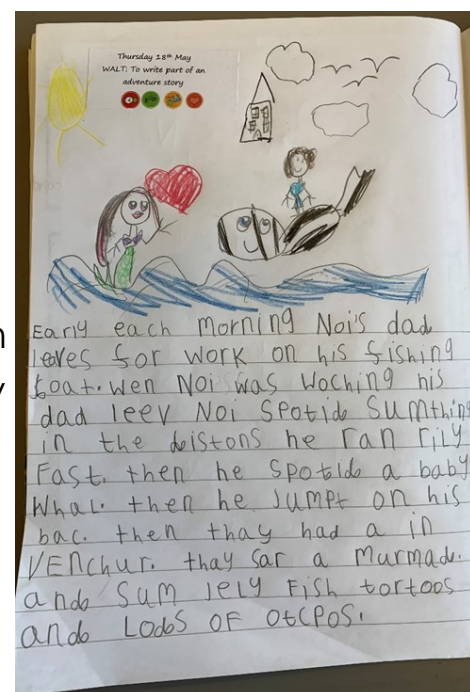 Thursday 18th May
WALT: To write part of an
adventure story
Early each morning Noi's dad
leaves for work on his fishing
boat. wen Noi was woching his
dad leev Noi Spotid Sumthing
in the distons he ran rily
Fast. then he spotid a baby
Whal. then he Jumpt on his
bac. then thay had a in
VEnchur. thay sar a Murmade.
and Sum Jely Fish tortoos
and Lods OF OtcPos.